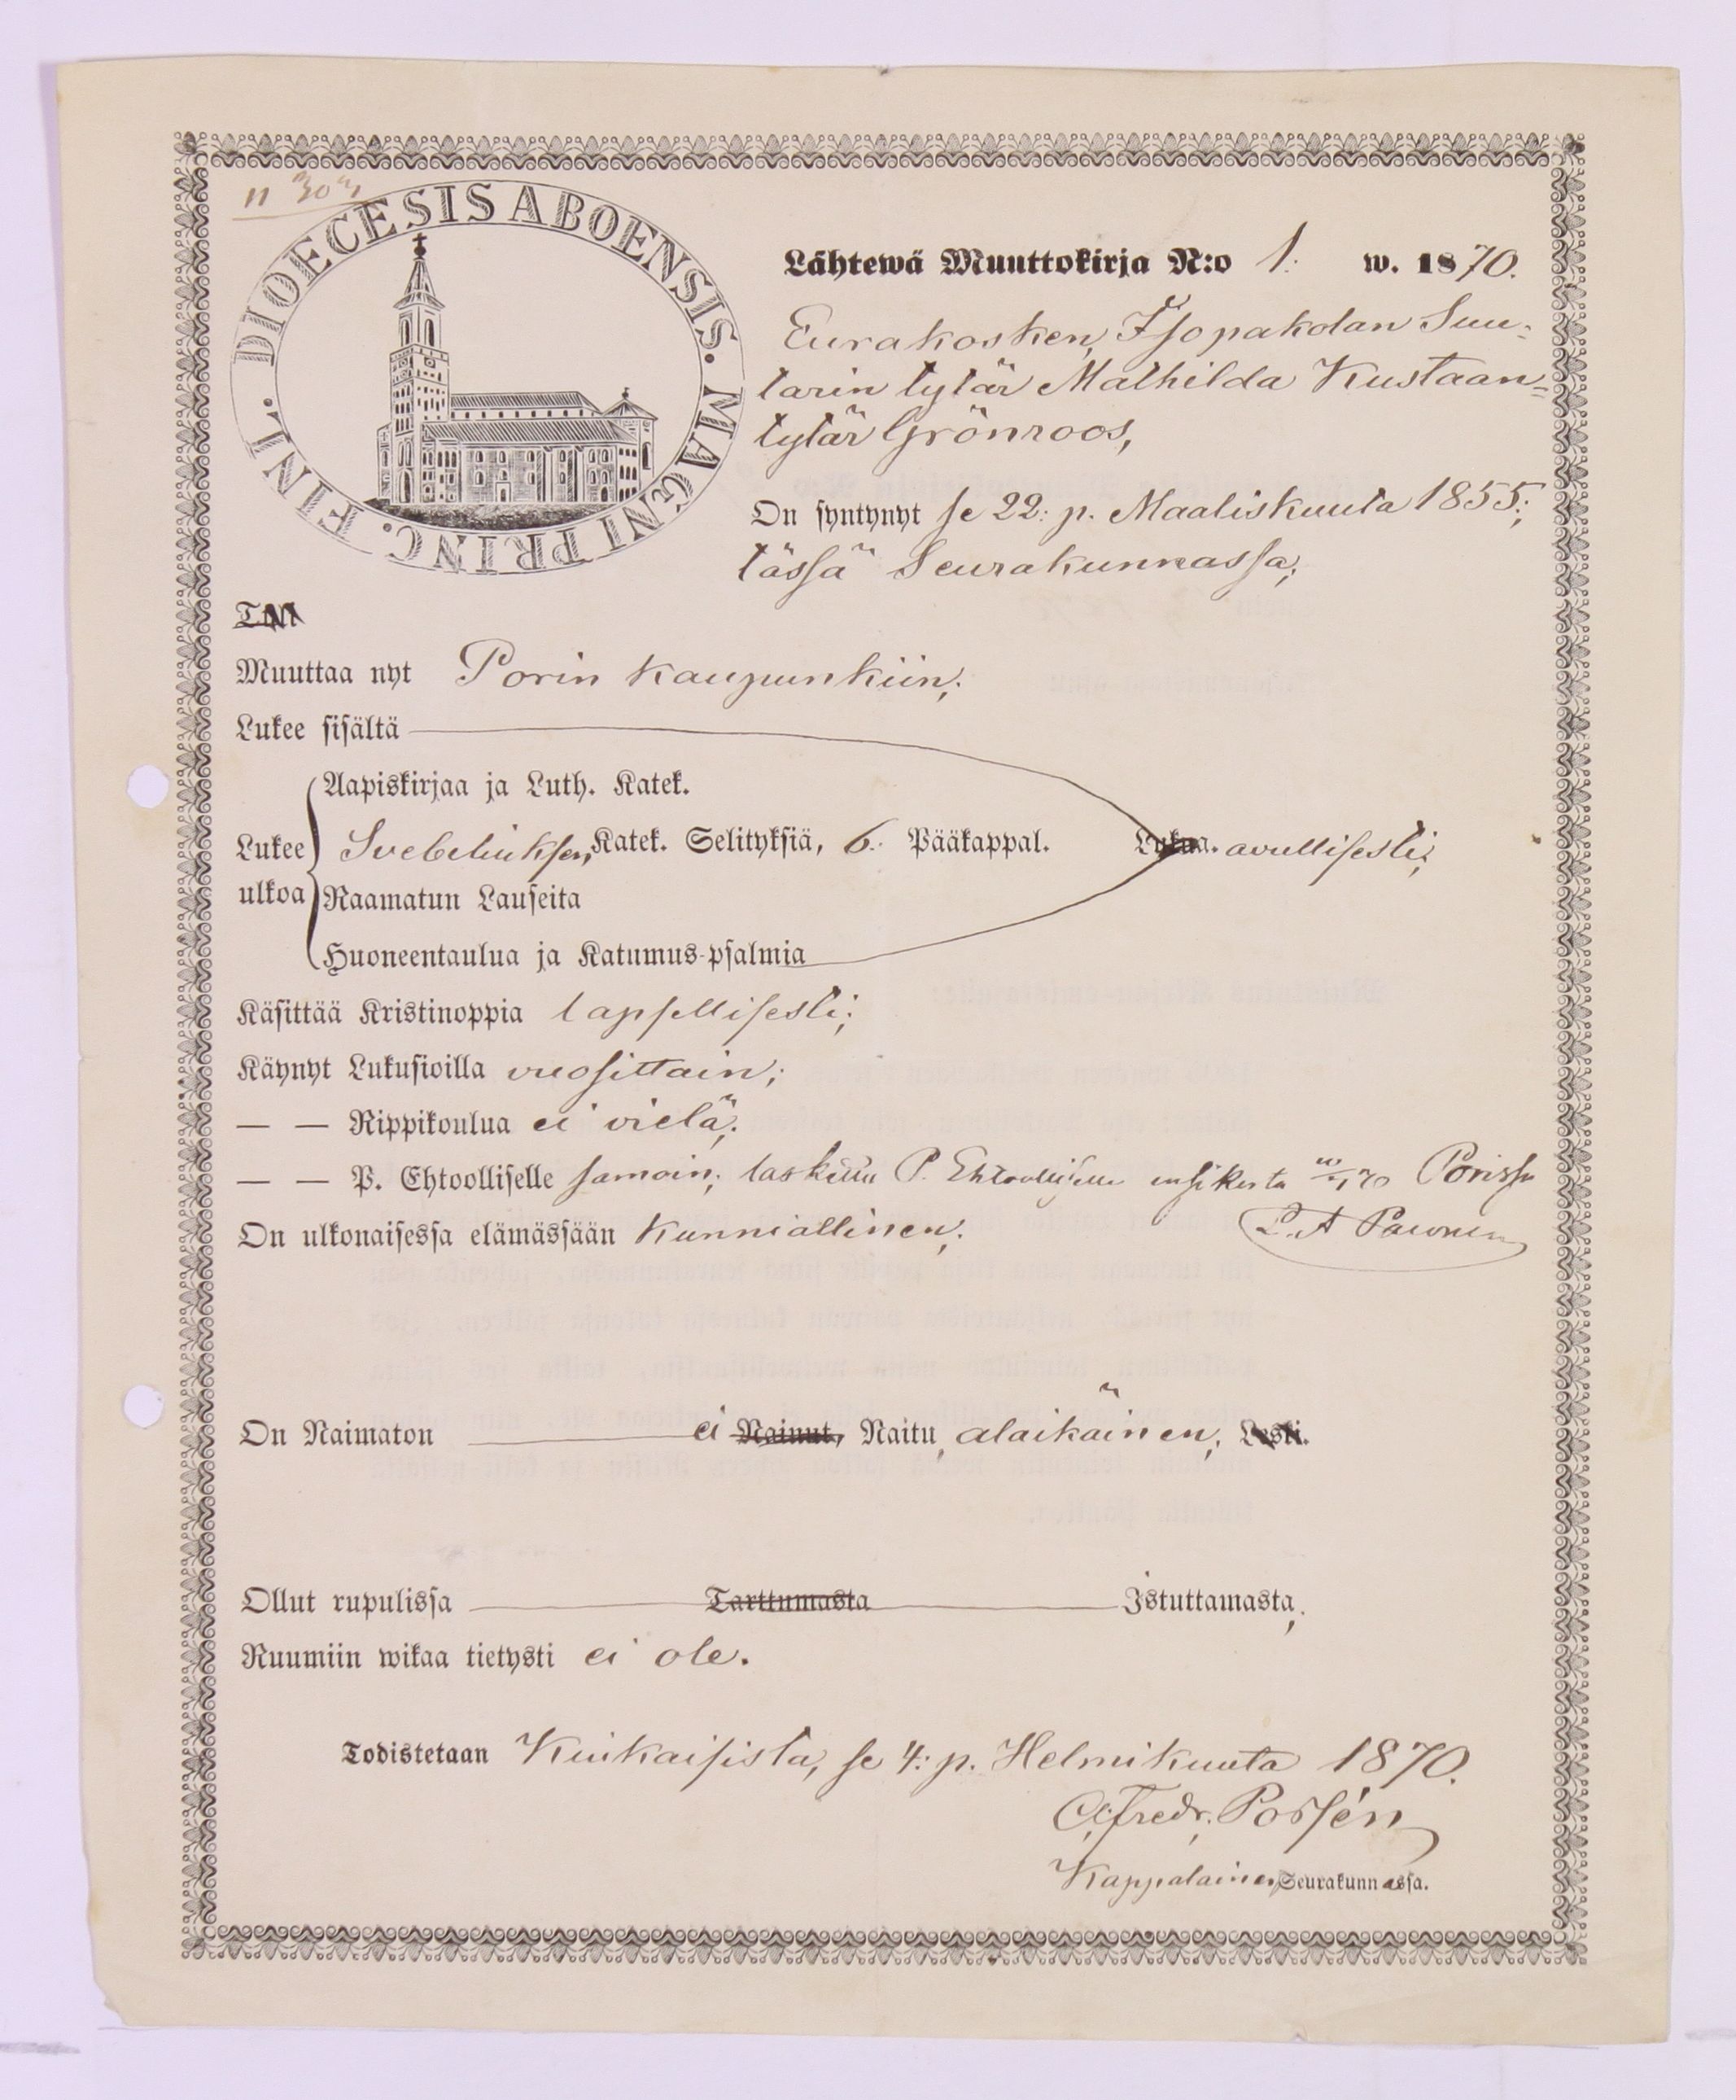 DIOECESIS ABOENSIS. MAGNI PRINC. FINL.
Lähtewä Muuttokirja N:o 1. w. 1870.
Eurakosken, Isopakolan Suu-
tarin tytär Mathilda Kustaan-
tytär Grönroos,
On syntynyt se 22: p. Maaliskuuta 1855;
tässä Seurakunnassa;
Tuli
Muuttaa nyt Porin kaupunkiin;
Lukee sisältä
Aapiskirjaa ja Luth. Katek.
Lukee ulkoa Svebeliuksen, Katek. Selityksiä, 6. Pääkappal. Lukua. avullisesti;
Raamatun Lauseita
Huoneentaulua ja Katumus-psalmia
Käsittää Kristinoppia lapsellisesti;
Käynyt Lukusioilla vuosittain;
— — Rippikoulua ei vielä;
— — P. Ehtoolliselle samoin; laskettu P. Ehtoolliselle ensikerta 70 Porissa
On ulkonaisessa elämässään kunniallinen;
On Naimaton ei Nainut, Naitu, alaikäinen; Leski.
Ollut rupulissa Tarttumasta Istuttamasta;
Ruumiin wikaa tietysti ei ole.
Todistetaan Kiukaisista, se 4: p. Helmikuuta 1870.
Alfredr. Possén
Kappalainen Seurakunnassa.